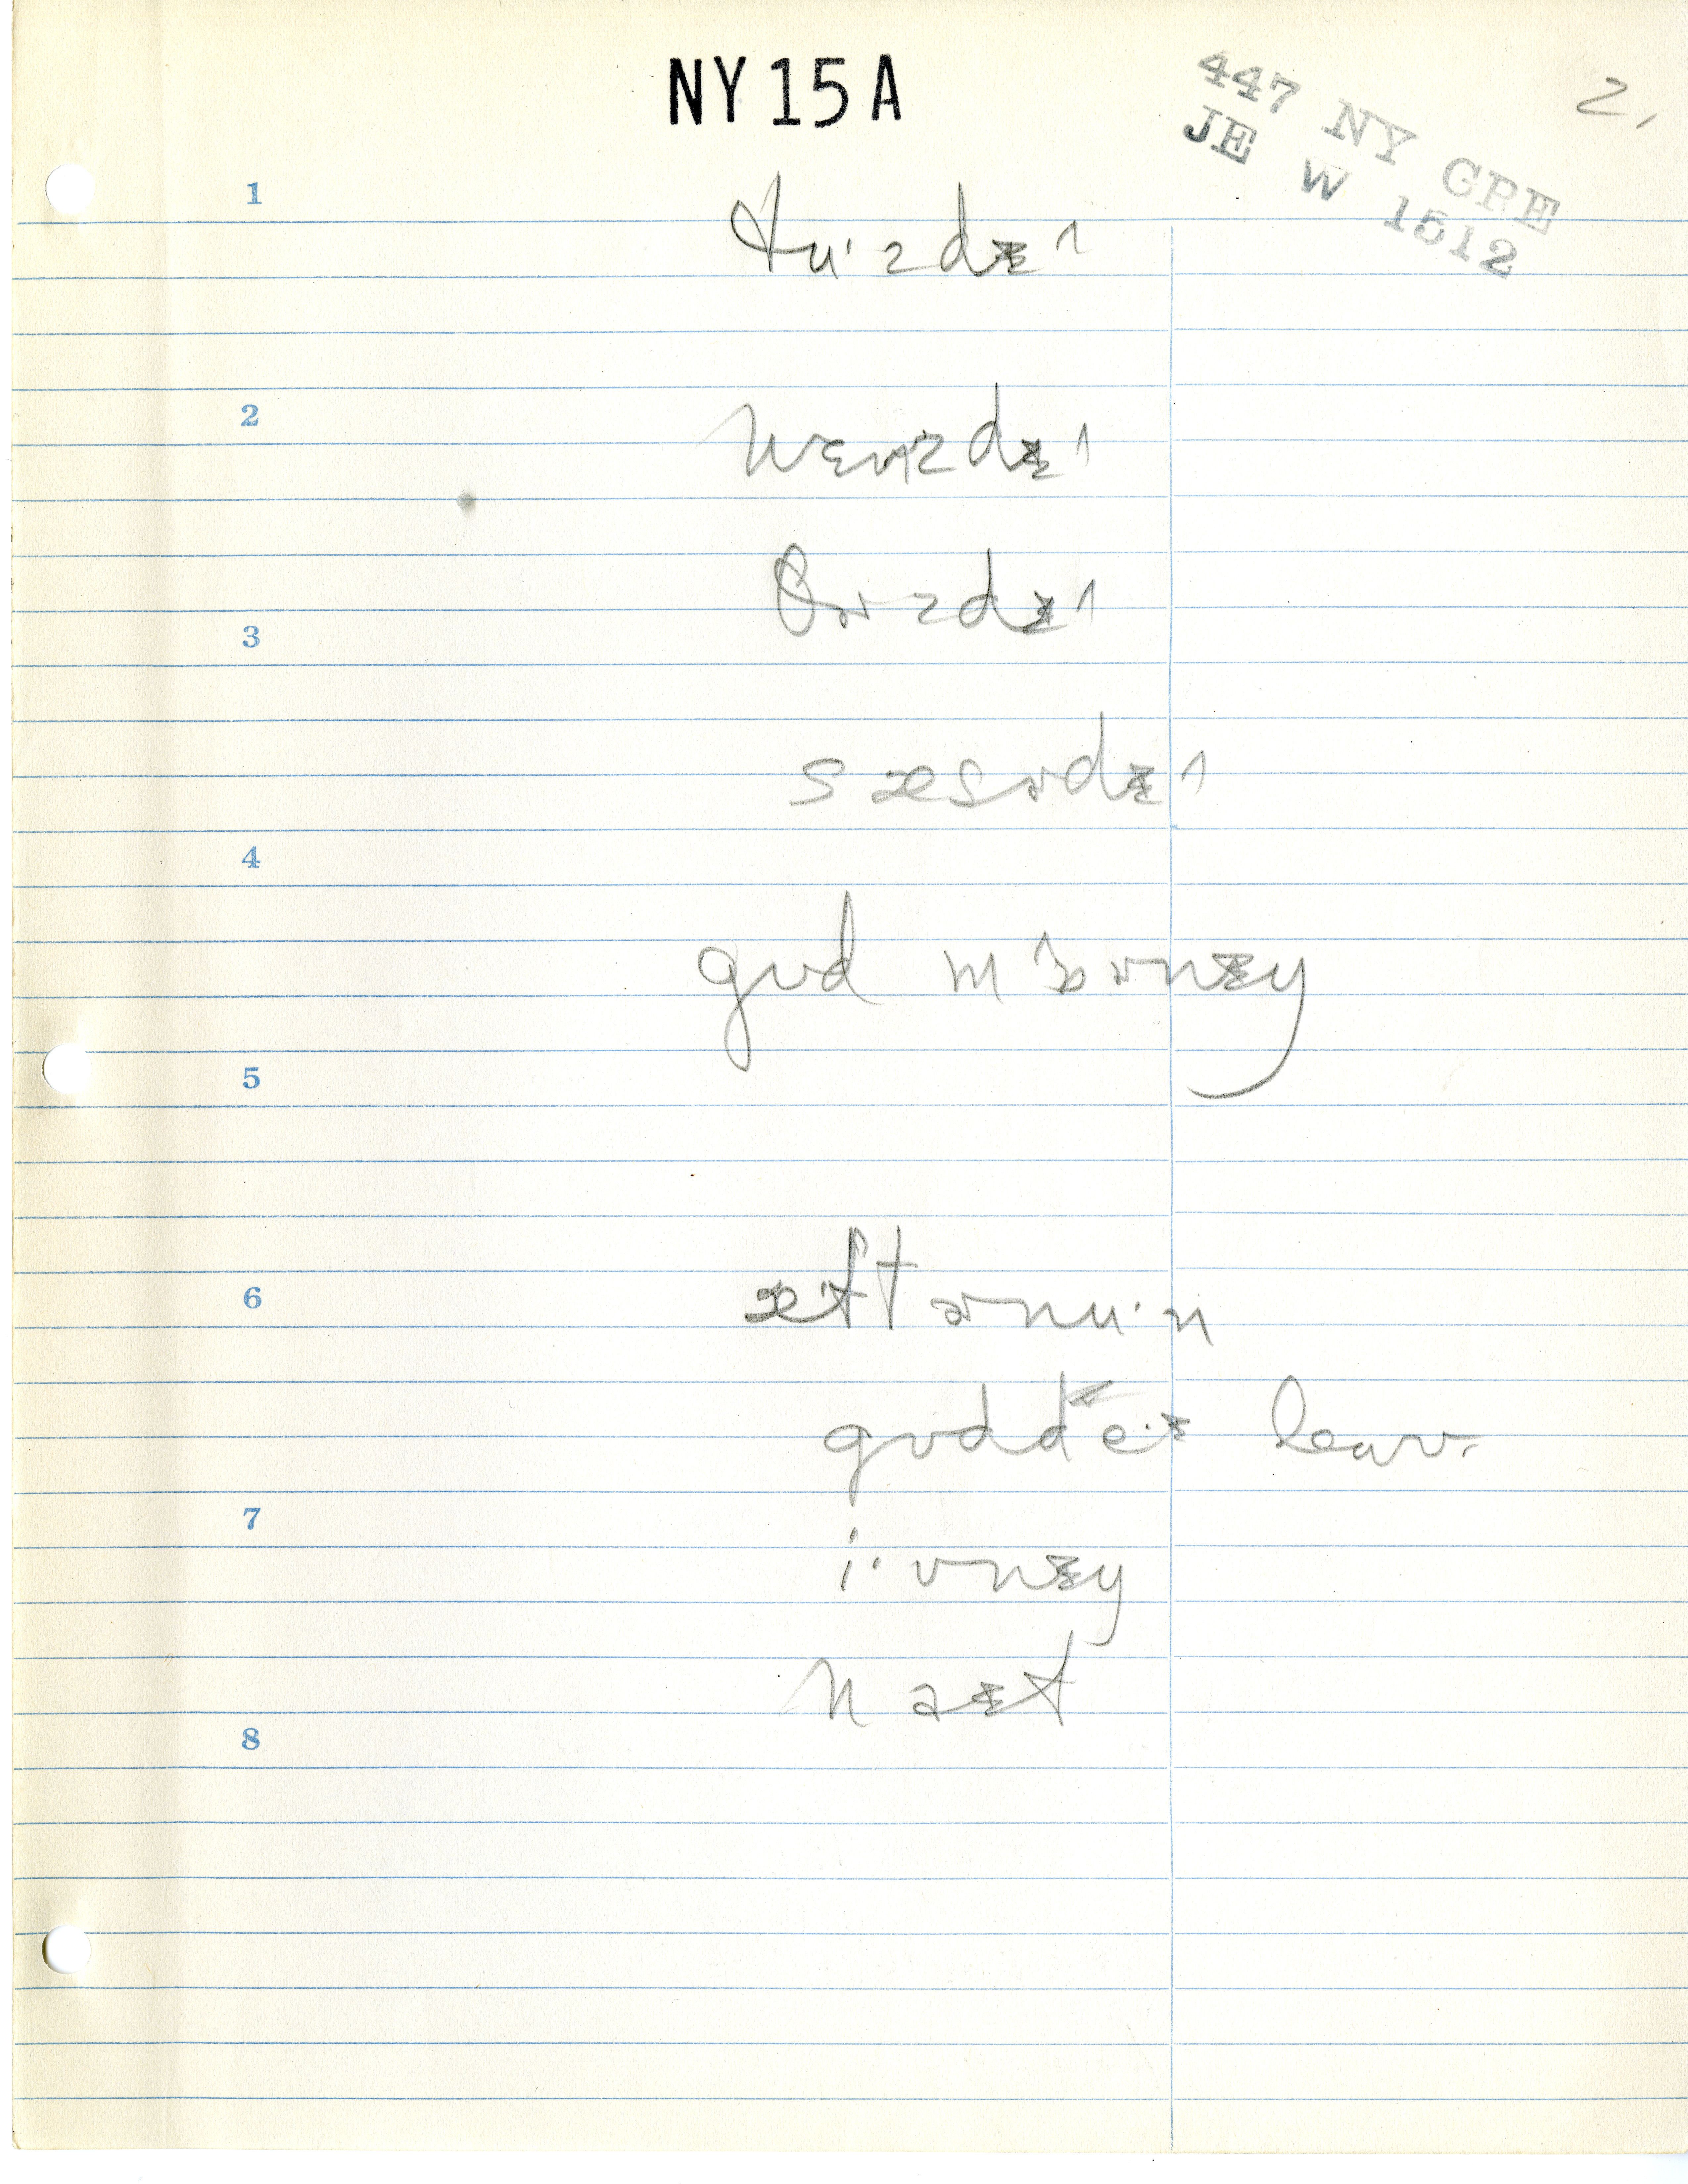 NY15A
2.
447 NY GRE
JE W 1512
1
tu·zdɪ^
2
wɛnzdɪ^
θɚzdɪ^
3
sæsɚdɪ^
4
gʊd mɔ^ɚnɪŋ
5
6
æftɚnu·n
gʊd de·ɪ
7
i·vnɪŋ
naɪt
8